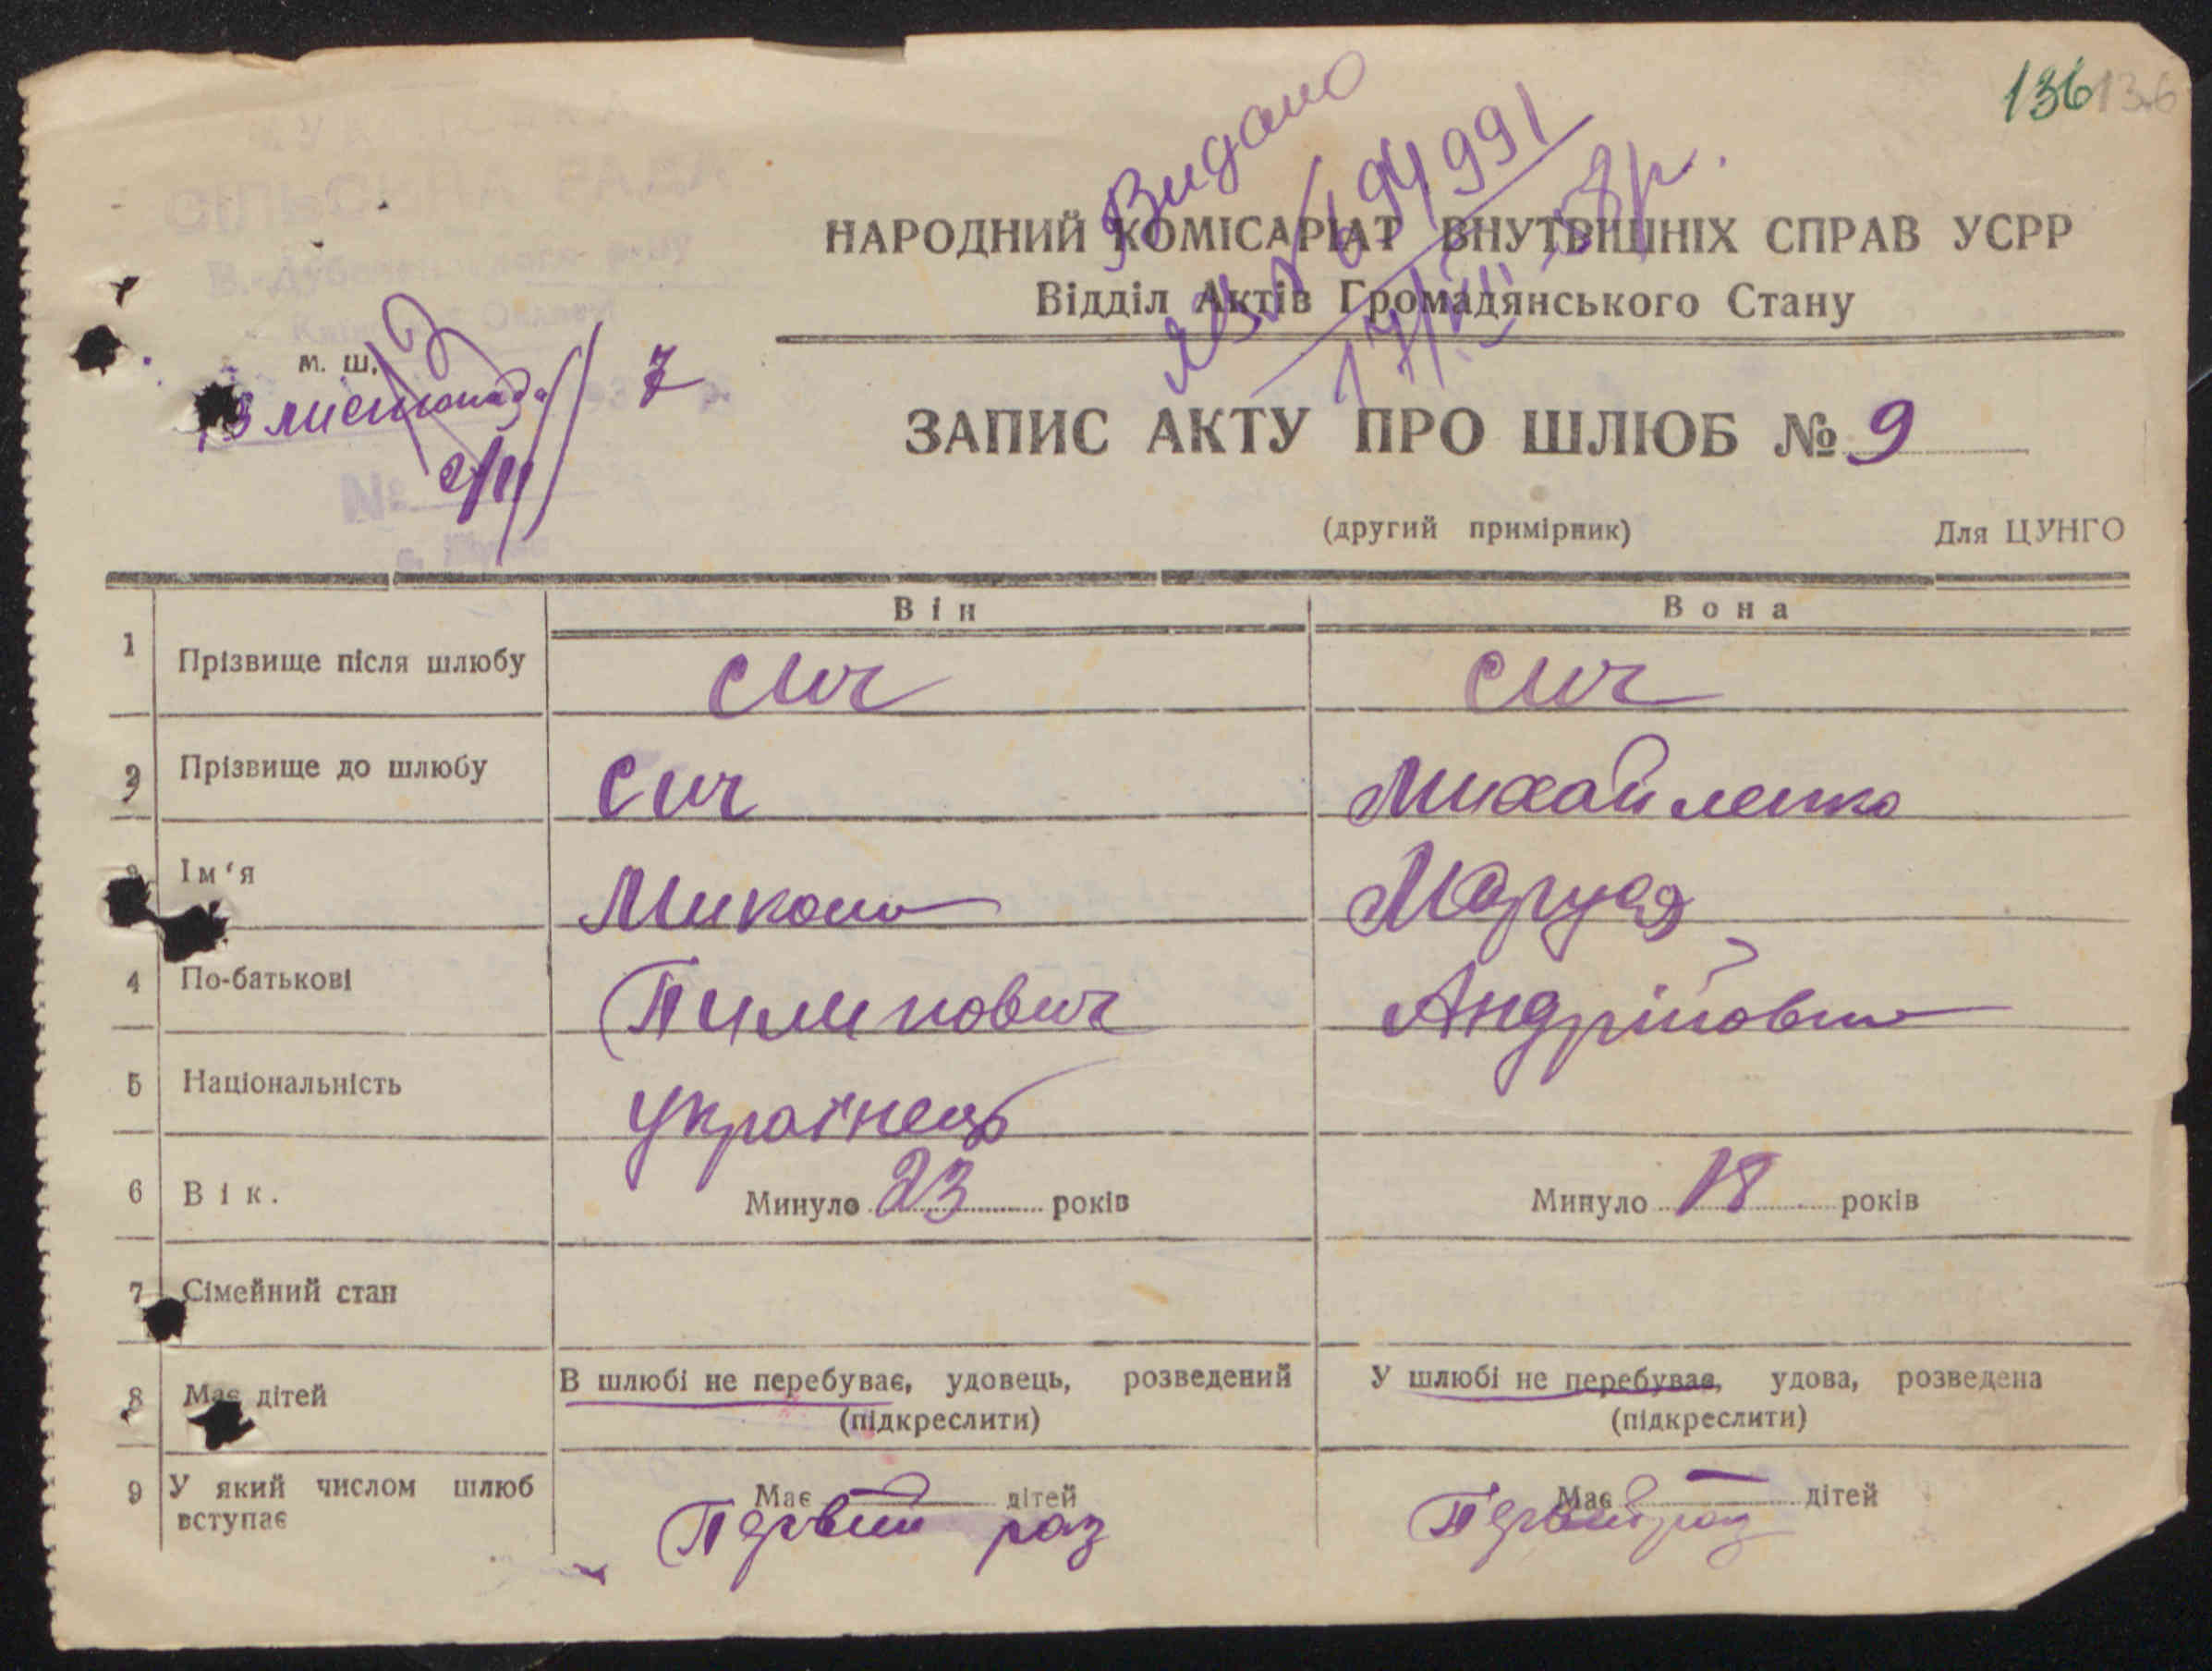 136 136
Видано
НАРОДНИЙ КОМІСАРІАТ ВНУТРІШНІХ СПРАВ УСРР
Відділ Актів Громадянського Стану
СІЛЬСЬКА РАДА
м. ш.
листопада 7
ЗАПИС АКТУ ПРО ШЛЮБ № 9
№
(другий примірник) Для ЦУНГО
Він Вона
1 Прізвище після шлюбу Сич Сич
2 Прізвище до шлюбу Сич Михайленко
Ім‘я Микола Маруся
4 По-батькові Пилипович Андрійовна
5 Національність Українець
6 Вік. Минуло 23 років Минуло 18 років
7 Сімейний стан
8 Має дітей В шлюбі не перебуває, удовець, розведений У шлюбі не перебуває, удова, розведена
(підкреслити) (підкреслити)
9 У який числом шлюб вступає Має — дітей Має — дітей
Первий раз Первий раз